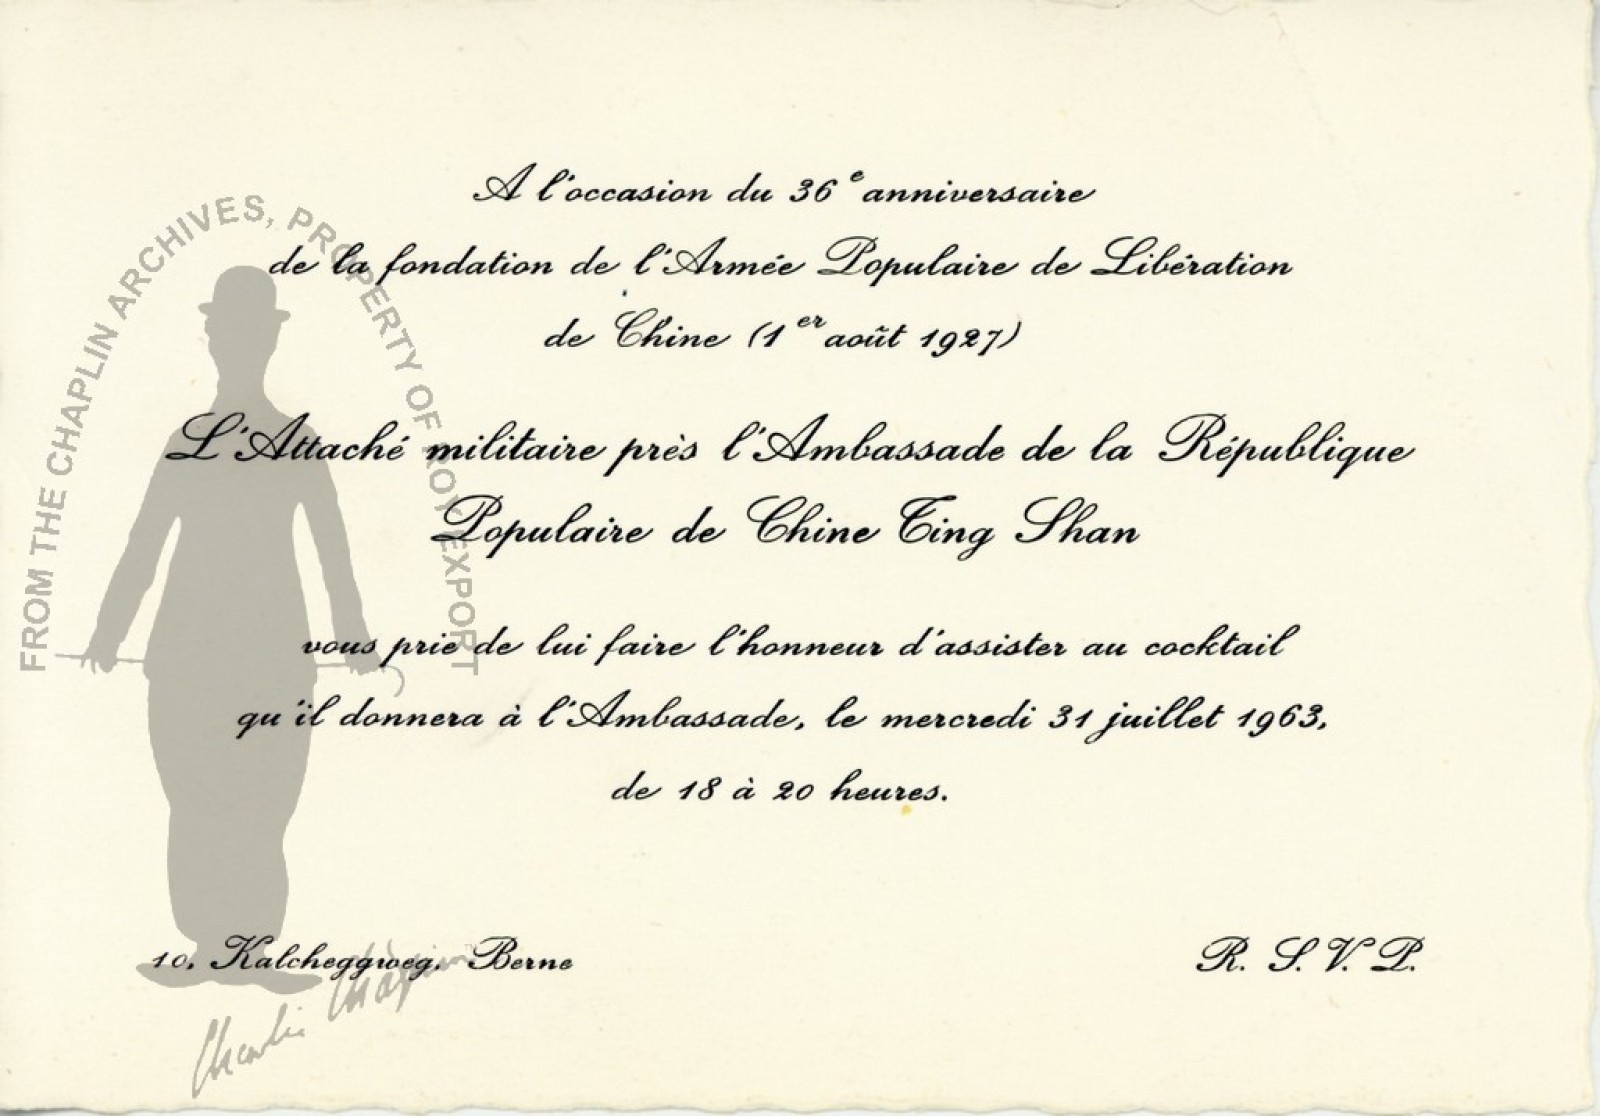 A l'occasion du 36e anniversaire
de la fondation de l'Armée Populaire de Libération
de Chine (1er août 1927)
L'Attaché militaire près l'Ambassade de la République
Populaire de Chine Ting Shan
vous prie de lui faire l'honneur d'assister au cocktail
qu'il donnera à l'Ambassade, le mercredi 31 juillet 1963,
de 18 à 20 heures.
10, Kalcheggweg, Berne
R. S. V. P.
FROM THE CHAPLIN ARCHIVES, PROPERTY OF ROY EXPORT
Charlie Chaplin